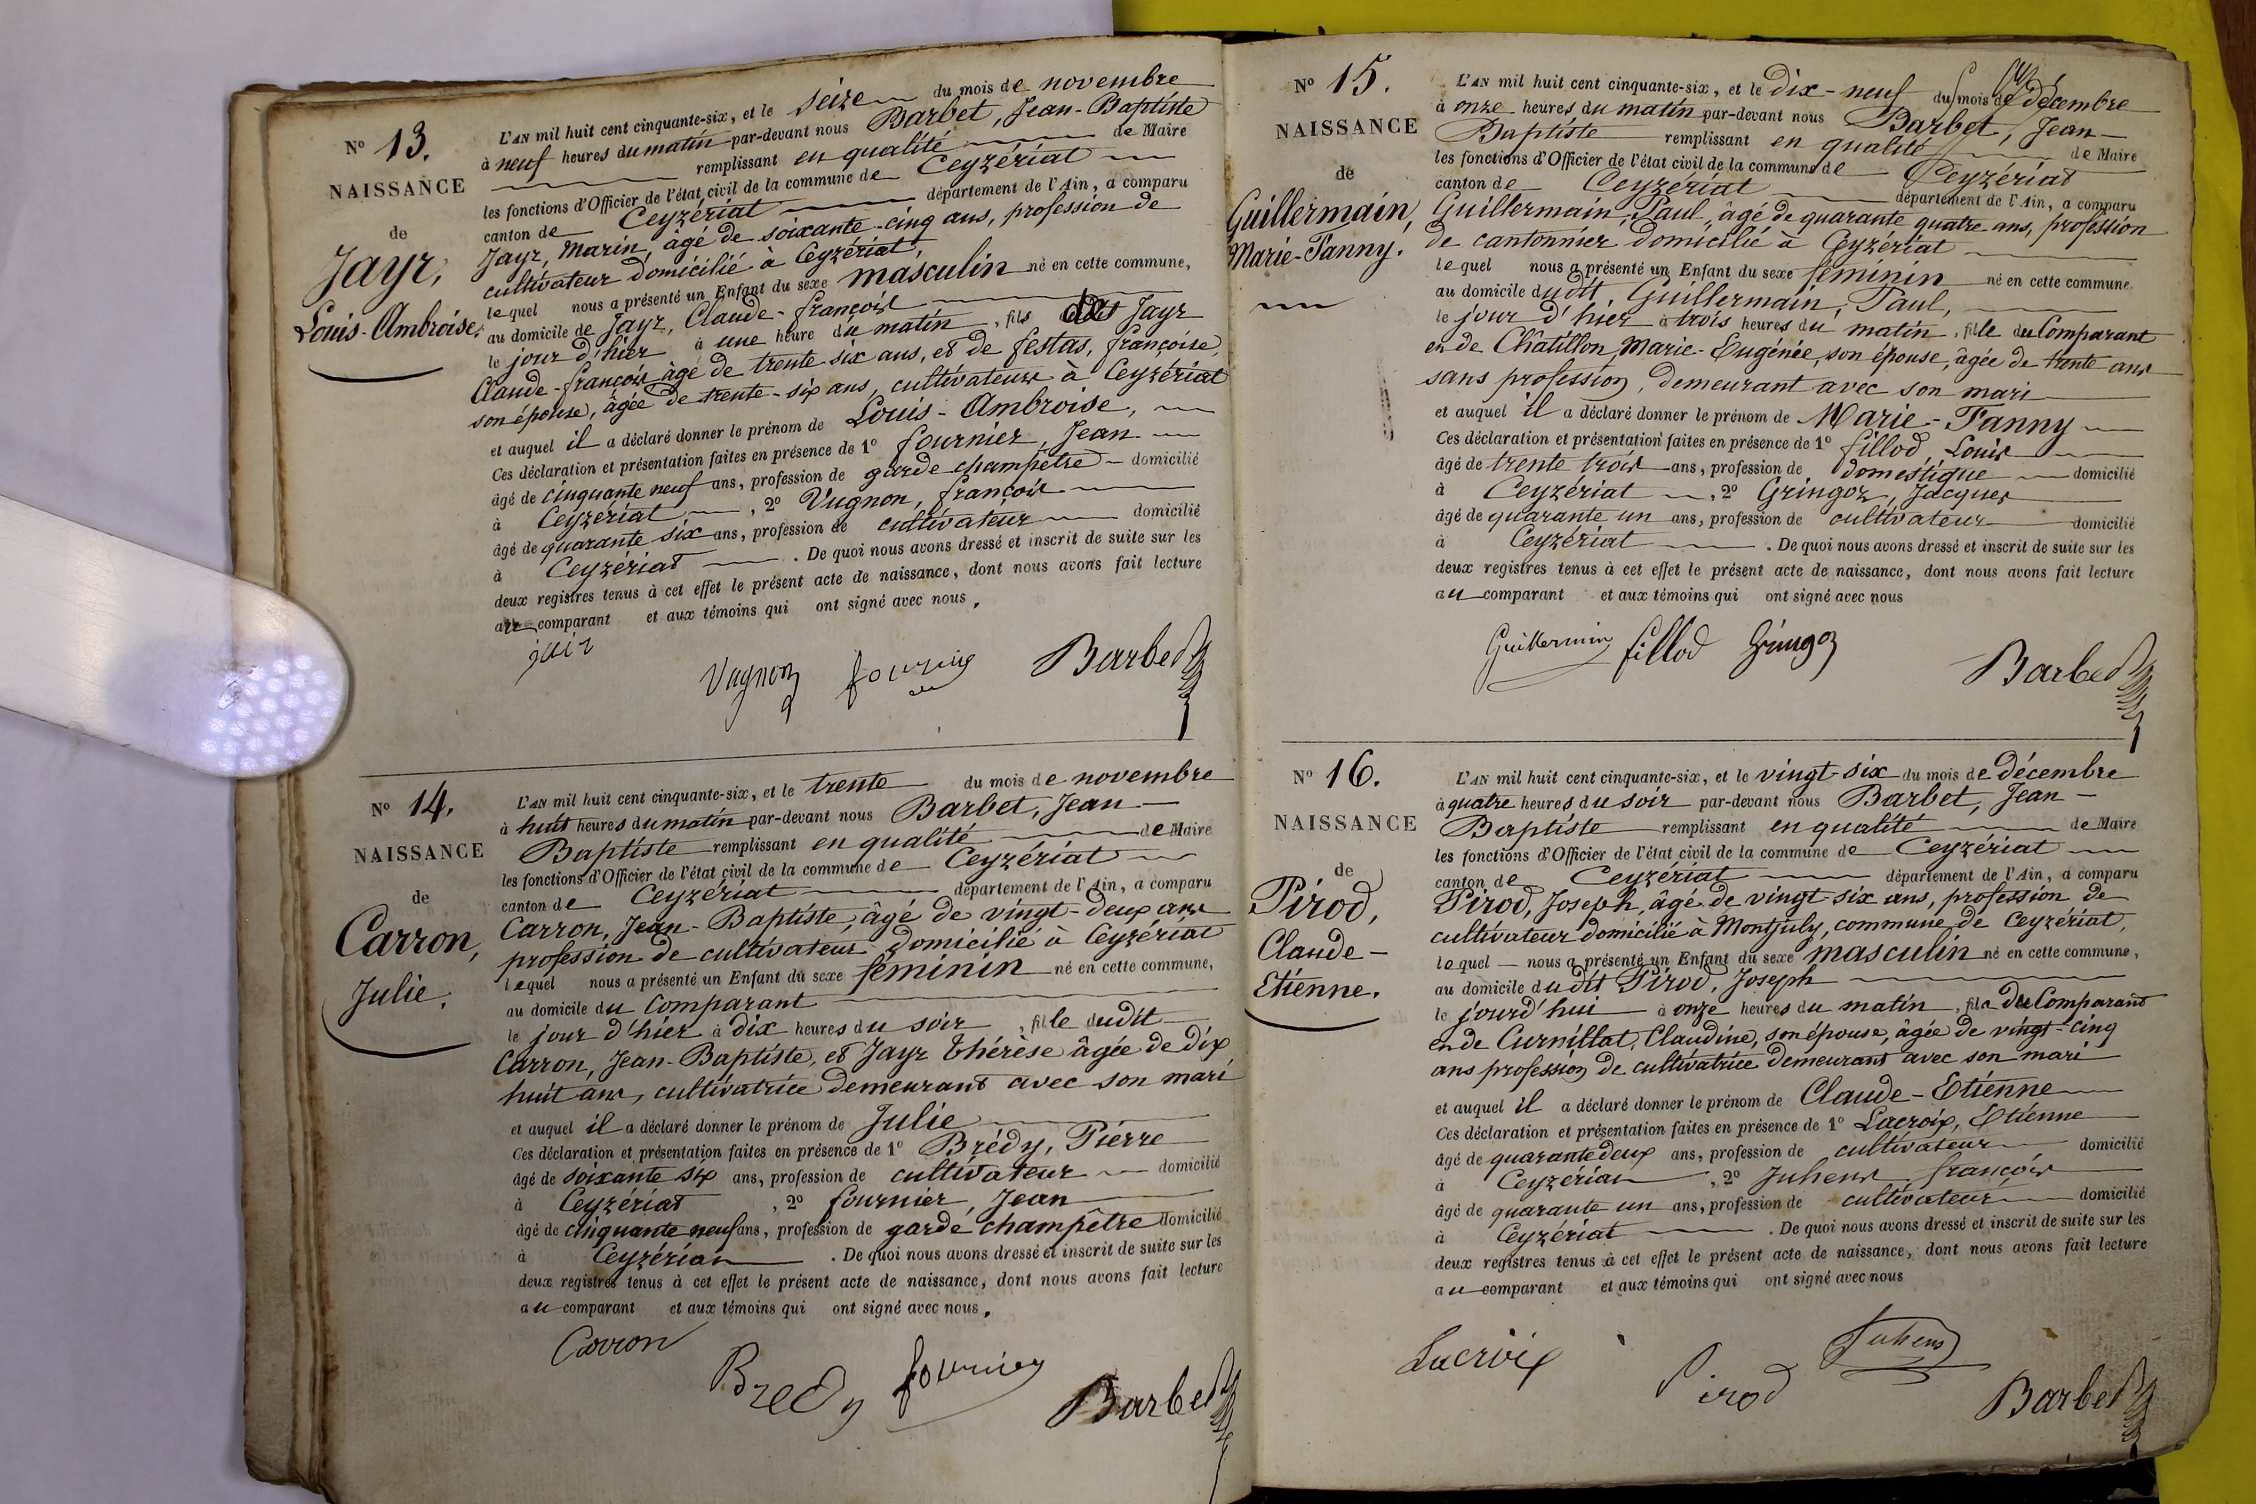 N° 13.
NAISSANCE
de
Jayr,
Louis-Ambroise.
L'AN mil huit cent cinquante-six, et le seize du mois de novembre
à neuf heures du matin par-devant nous Barbet, Jean-Baptiste
remplissant en qualité de Maire
les fonctions d'Officier de l'état civil de la commune de Ceyzériat
canton de Ceyzériat département de l'Ain, a comparu
Jayr, Marin, âgé de soixante-cinq ans, profession de
cultivateur domicilié a Ceyzériat,
lequel nous a présenté un Enfant du sexe masculin né en cette commune,
au domicile de Jayr, Claude-françois
le jour d'hier à une heure du matin, fils des Jayr
Claude-françois âgé de trente six ans, et de festas, françoise,
son épouse, âgée de trente-six ans, cultivateurs à Ceyzériat
et auquel il a déclaré donner le prénom de Louis-Ambroise,
Ces déclaration et présentation faites en présence de 1° fournier, Jean
âgé de cinquante neuf ans, profession de garde champêtre domicilié
à Ceyzériat, 2° Vugnon, françois
âgé de quarante six ans, profession de cultivateur domicilié
à Ceyzériat. De quoi nous avons dressé et inscrit de suite sur les
deux registres tenus à cet effet le présent acte de naissance, dont nous avons fait lecture
au comparant et aux témoins qui ont signé avec nous.
Vugnon fournier Barbet
N° 14.
NAISSANCE
de
Carron,
Julie.
L'AN mil huit cent cinquante-six, et le trente du mois de novembre
à huit heures du matin par-devant nous Barbet, Jean
Baptiste remplissant en qualité de Maire
les fonctions d'Officier de l'état civil de la commune de Ceyzériat
canton de Ceyzériat département de l'Ain, a comparu
Carron, Jean-Baptiste, âgé de vingt-deux ans
profession de cultivateur domicilié à Ceyzériat
lequel nous a présenté un Enfant du sexe féminin né en cette commune,
au domicile du Comparant
le jour d'hier à dix heures du soir, fille dudit
Carron, Jean-Baptiste, et Jayr Thérèse âgée de dix
huit ans, cultivatrice demeurant avec son mari
et auquel il a déclaré donner le prénom de Julie
Ces déclaration et présentation faites en présence de 1° Brédy, Pierre
âgé de soixante six ans, profession de cultivateur domicilié
à Ceyzériat, 2° fournier, Jean
âgé de cinquante neuf ans, profession de garde champêtre domicilié
à Ceyzériat. De quoi nous avons dressé et inscrit de suite sur les
deux registres tenus à cet effet le présent acte de naissance, dont nous avons fait lecture
au comparant et aux témoins qui ont signé avec nous.
Carron
Bredy fournier Barbet
N° 15.
NAISSANCE
de
Guillermain,
Marie-Fanny.
L'AN mil huit cent cinquante-six, et le dix-neuf du mois de décembre
à onze heures du matin par-devant nous Barbet, Jean-
Baptiste remplissant en qualité de Maire
les fonctions d'Officier de l'état civil de la commune de Ceyzériat
canton de Ceyzériat département de l'Ain, a comparu
Guillermain, Paul, âgé de quarante quatre ans, profession
de cantonnier domicilié à Ceyzériat
lequel nous a présenté un Enfant du sexe féminin né en cette commune
au domicile dudit, Guillermain, Paul,
le jour d'hier à trois heures du matin, fille du Comparant
et de Chatillon, Marie-Eugénée, son épouse, âgée de trente ans
sans profession, demeurant avec son mari
et auquel il a déclaré donner le prénom de Marie-Fanny
Ces déclaration et présentation faites en présence de 1° fillod, Louis
âgé de trente trois ans, profession de domestique domicilié
à Ceyzériat, 2° Gringoz, Jacques
âgé de quarante un ans, profession de cultivateur domicilié
à Ceyzériat. De quoi nous avons dressé et inscrit de suite sur les
deux registres tenus à cet effet le présent acte de naissance, dont nous avons fait lecture
au comparant et aux témoins qui ont signé avec nous
Guillermin fillod Gringoz
Barbet
N° 16.
NAISSANCE
de
Pirod,
Claude-
Etienne.
L'AN mil huit cent cinquante-six, et le vingt-six du mois de décembre
à quatre heures du soir par-devant nous Barbet, Jean-
Baptiste remplissant en qualité de Maire
les fonctions d'Officier de l'état civil de la commune de Ceyzériat
canton de Ceyzériat département de l'Ain, a comparu
Pirod, Joseph, âgé de vingt six ans, profession de
cultivateur domicilié à Montjuly, commune de Ceyzériat,
lequel nous a présenté un Enfant du sexe masculin né en cette commune,
au domicile dudit Pirod, Joseph
le jourd'hui à onze heures du matin, fils du Comparant
et de Curnillat, Claudine, son épouse, âgée de vingt-cinq
ans profession de cultivatrice demeurant avec son mari
et auquel il a déclaré donner le prénom de Claude-Etienne
Ces déclaration et présentation faites en présence de 1° Lacroix, Etienne
âgé de quarante deux ans, profession de cultivateur domicilié
à Ceyzériat, 2° Juhens françois
âgé de quarante un ans, profession de cultivateur domicilié
à Ceyzériat. De quoi nous avons dressé et inscrit de suite sur les
deux registres tenus à cet effet le présent acte de naissance, dont nous avons fait lecture
au comparant et aux témoins qui ont signé avec nous
Lacroix Pirod Juhens
Barbet